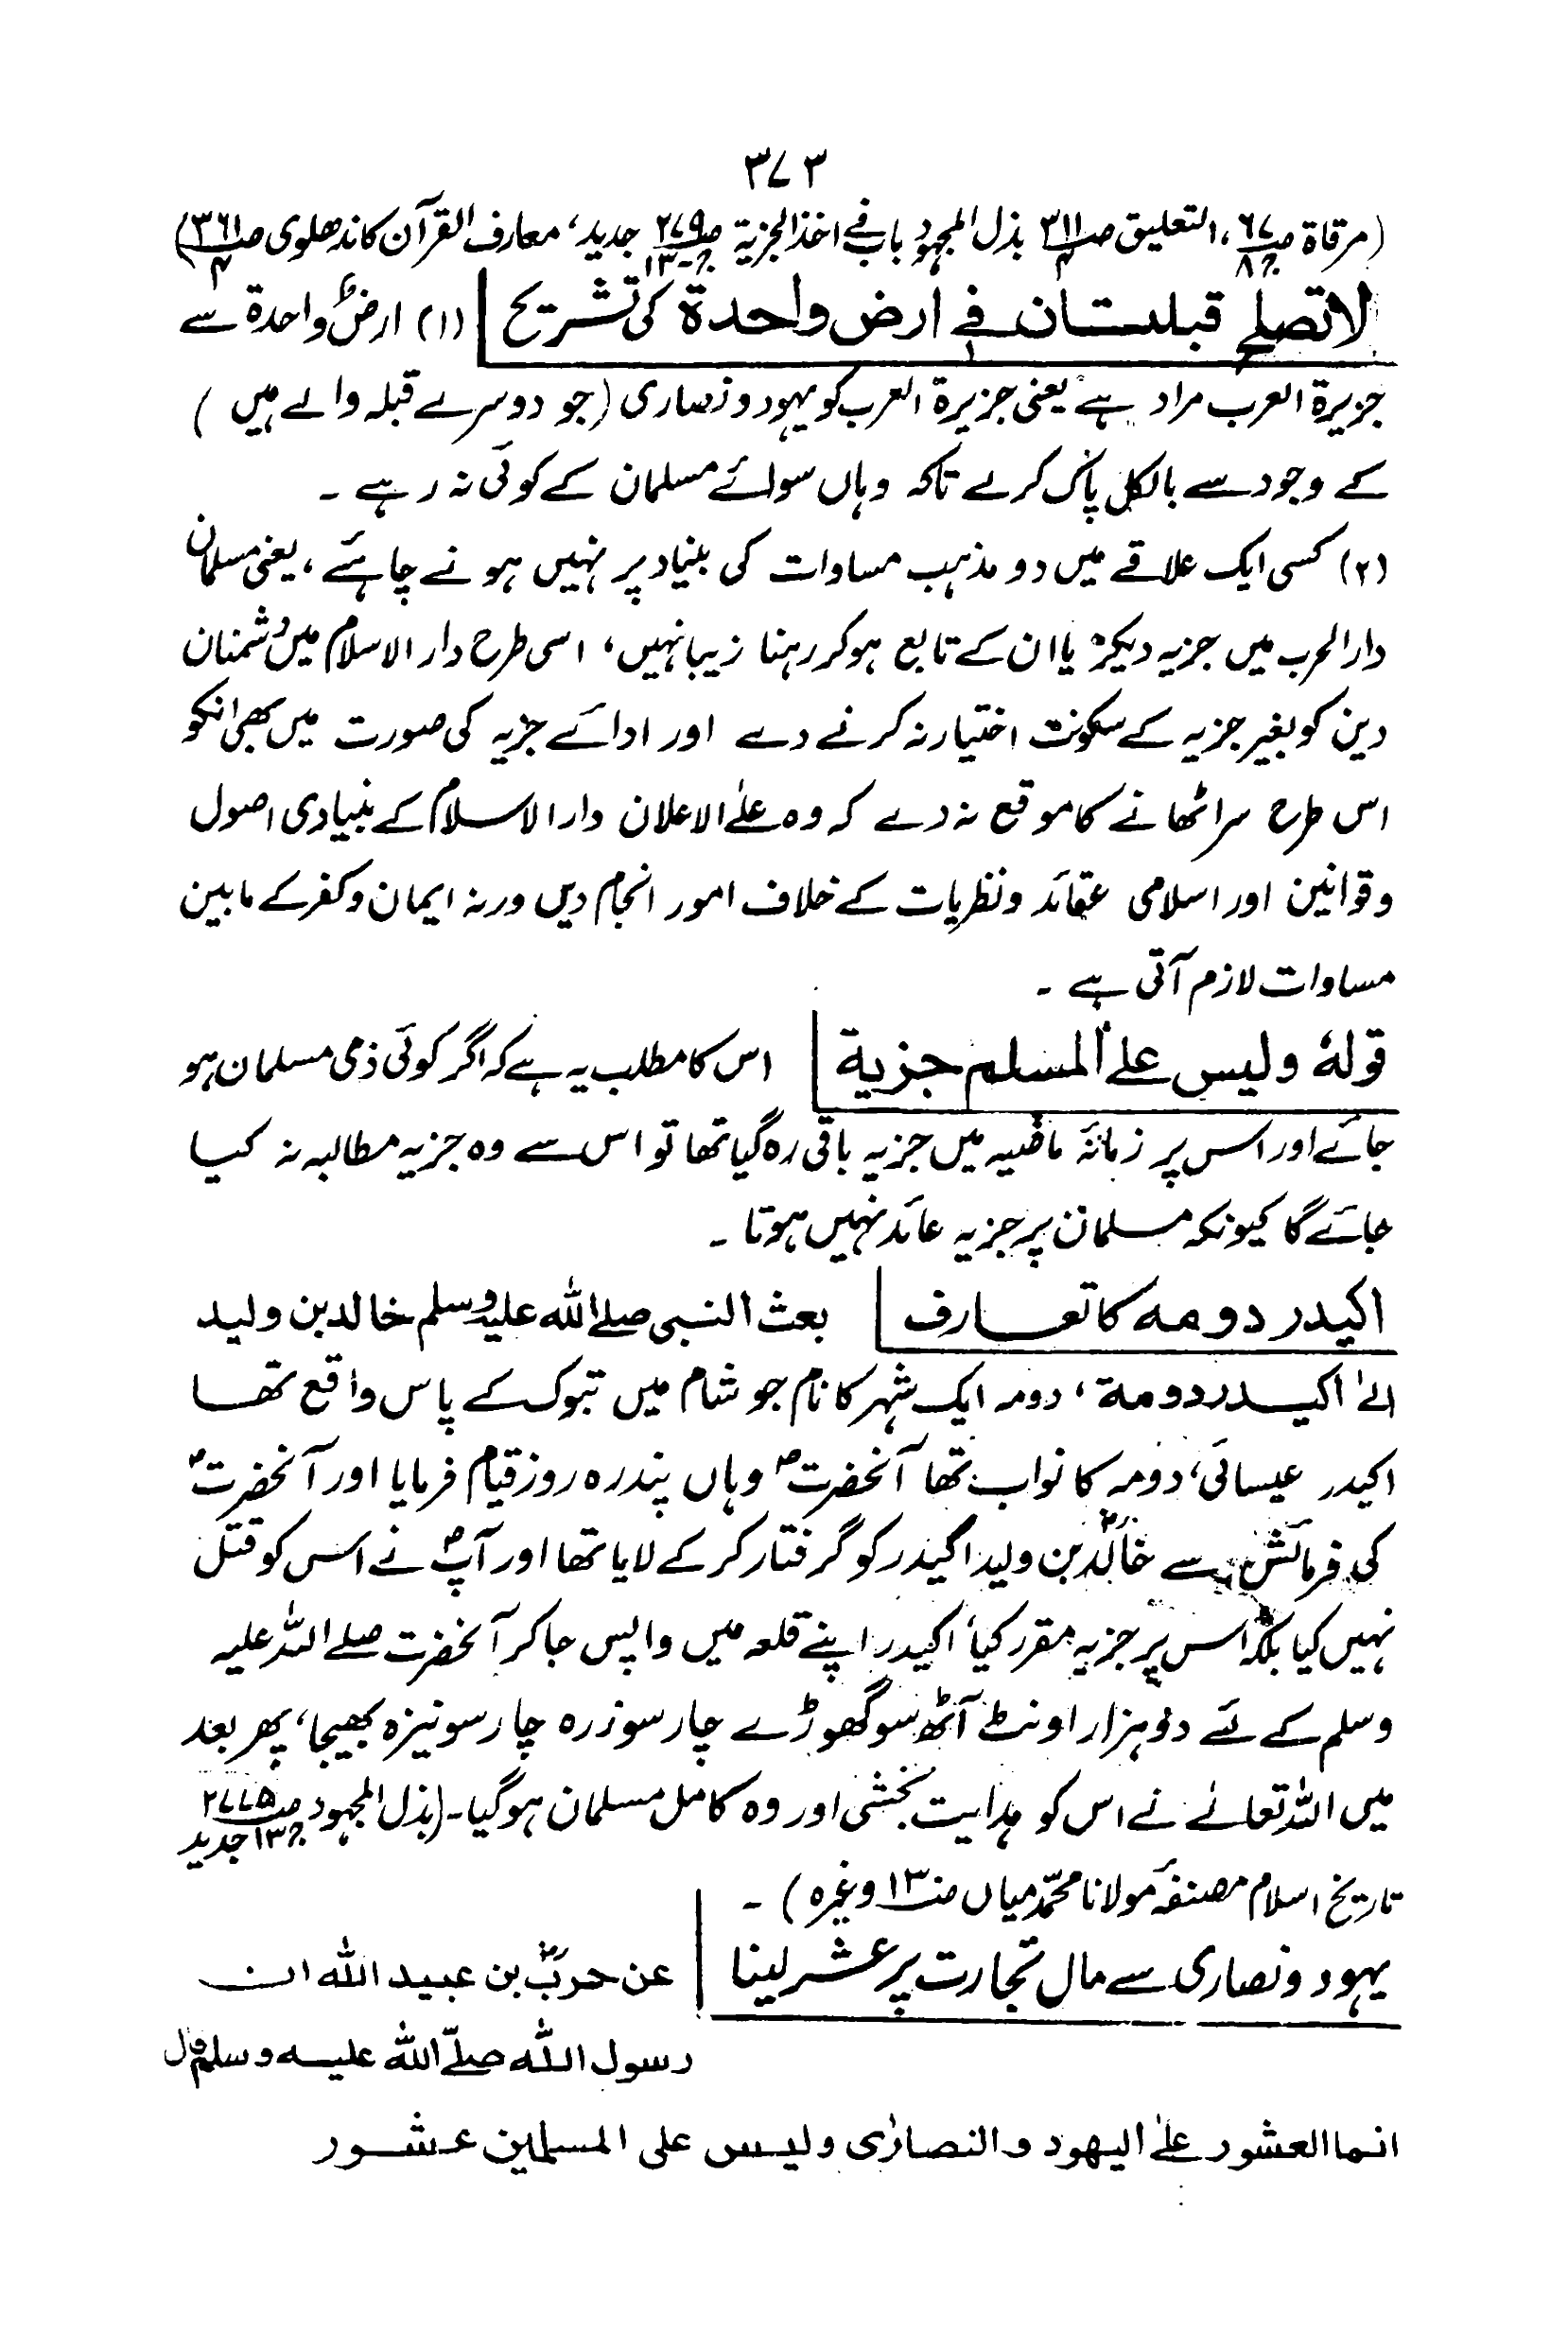 ۳۷۳
(مرقاة صـ۶۷ جـ۸، التعلیق صـ۳۱۱ ۴ بذل المجہود باب فی اخذ الجزیة صـ۲۷۹ جـ-۱۳ جدید، معارف القرآن کاندھلوی صـ۳۶۱ ۴)
لا تصلح قبلتان فی ارض واحدة کی تشریح (۱) ارض واحدة سے
جزیرة العرب مراد ہے یعنی جزیرة العرب کو یہود و نصاری (جو دوسرے قبلہ والے ہیں)
کے وجود سے بالکل پاک کرے تاکہ وہاں سوائے مسلمان کے کوئی نہ رہے ۔
(۲) کسی ایک علاقے میں دو مذہب مساوات کی بنیاد پر نہیں ہونے چاہئے، یعنی مسلمان
دارالحرب میں جزیہ دیکر یا ان کے تابع ہوکر رہنا زیبا نہیں، اسی طرح دار الاسلام میں دشمنان
دین کو بغیر جزیہ کے سکونت اختیار نہ کرنے دے اور ادائے جزیہ کی صورت میں بھی انکو
اس طرح سر اٹھانے کا موقع نہ دے کہ وہ علی الاعلان دار الاسلام کے بنیادی اصول
و قوانین اور اسلامی عقائد و نظریات کے خلاف امور انجام دیں ورنہ ایمان و کفر کے مابین
مساوات لازم آتی ہے ۔
قولهٗ ولیس علے المسلم جزیة اس کا مطلب یہ ہے کہ اگر کوئی ذمی مسلمان ہو
جائے اور اس پر زمانۂ ماضیہ میں جزیہ باقی رہ گیا تھا تو اس سے وہ جزیہ مطالبہ نہ کیا
جائے گا کیونکہ مسلمان پر جزیہ عائد نہیں ہوتا ۔
اکیدر دومہ کا تعارف بعث النبی صلے اللہ علیہ وسلم خالد بن ولید
الیٰ اکیدر دومة، دومہ ایک شہر کا نام جو شام میں تبوک کے پاس واقع تھا
اکیدر عیسائی، دومہ کا نواب تھا آنحضرتؐ وہاں پندرہ روز قیام فرمایا اور آنحضرتؐ
کی فرمائش سے خالدؓ بن ولید اکیدر کو گرفتار کرکے لایا تھا اور آپؐ نے اس کو قتل
نہیں کیا بلکہ اس پر جزیہ مقرر کیا، اکیدر اپنے قلعہ میں واپس جاکر آنحضرت صلے اللہ علیہ
وسلم کے لئے دو ہزار اونٹ آٹھ سو گھوڑے چار سو زرہ چار سو نیزہ بھیجا، پھر بعد
میں اللہ تعالےٰ نے اس کو ہدایت بخشی اور وہ کامل مسلمان ہوگیا۔ (بذل المجہود صـ۲۷۷۵ جـ۱۳ جدید
تاریخ اسلام مصنفہٗ مولانا محمّد میاں صـ۱۳ وغیرہ) ۔
یہود و نصاری سے مال تجارت پر عشر لینا عن حربؓ بن عبید اللہ ان
رسول اللہ صلّے اللہ علیہ وسلم قال
انما العشور علےٰ الیهود والنصارٰی ولیس علی المسلمین عشور